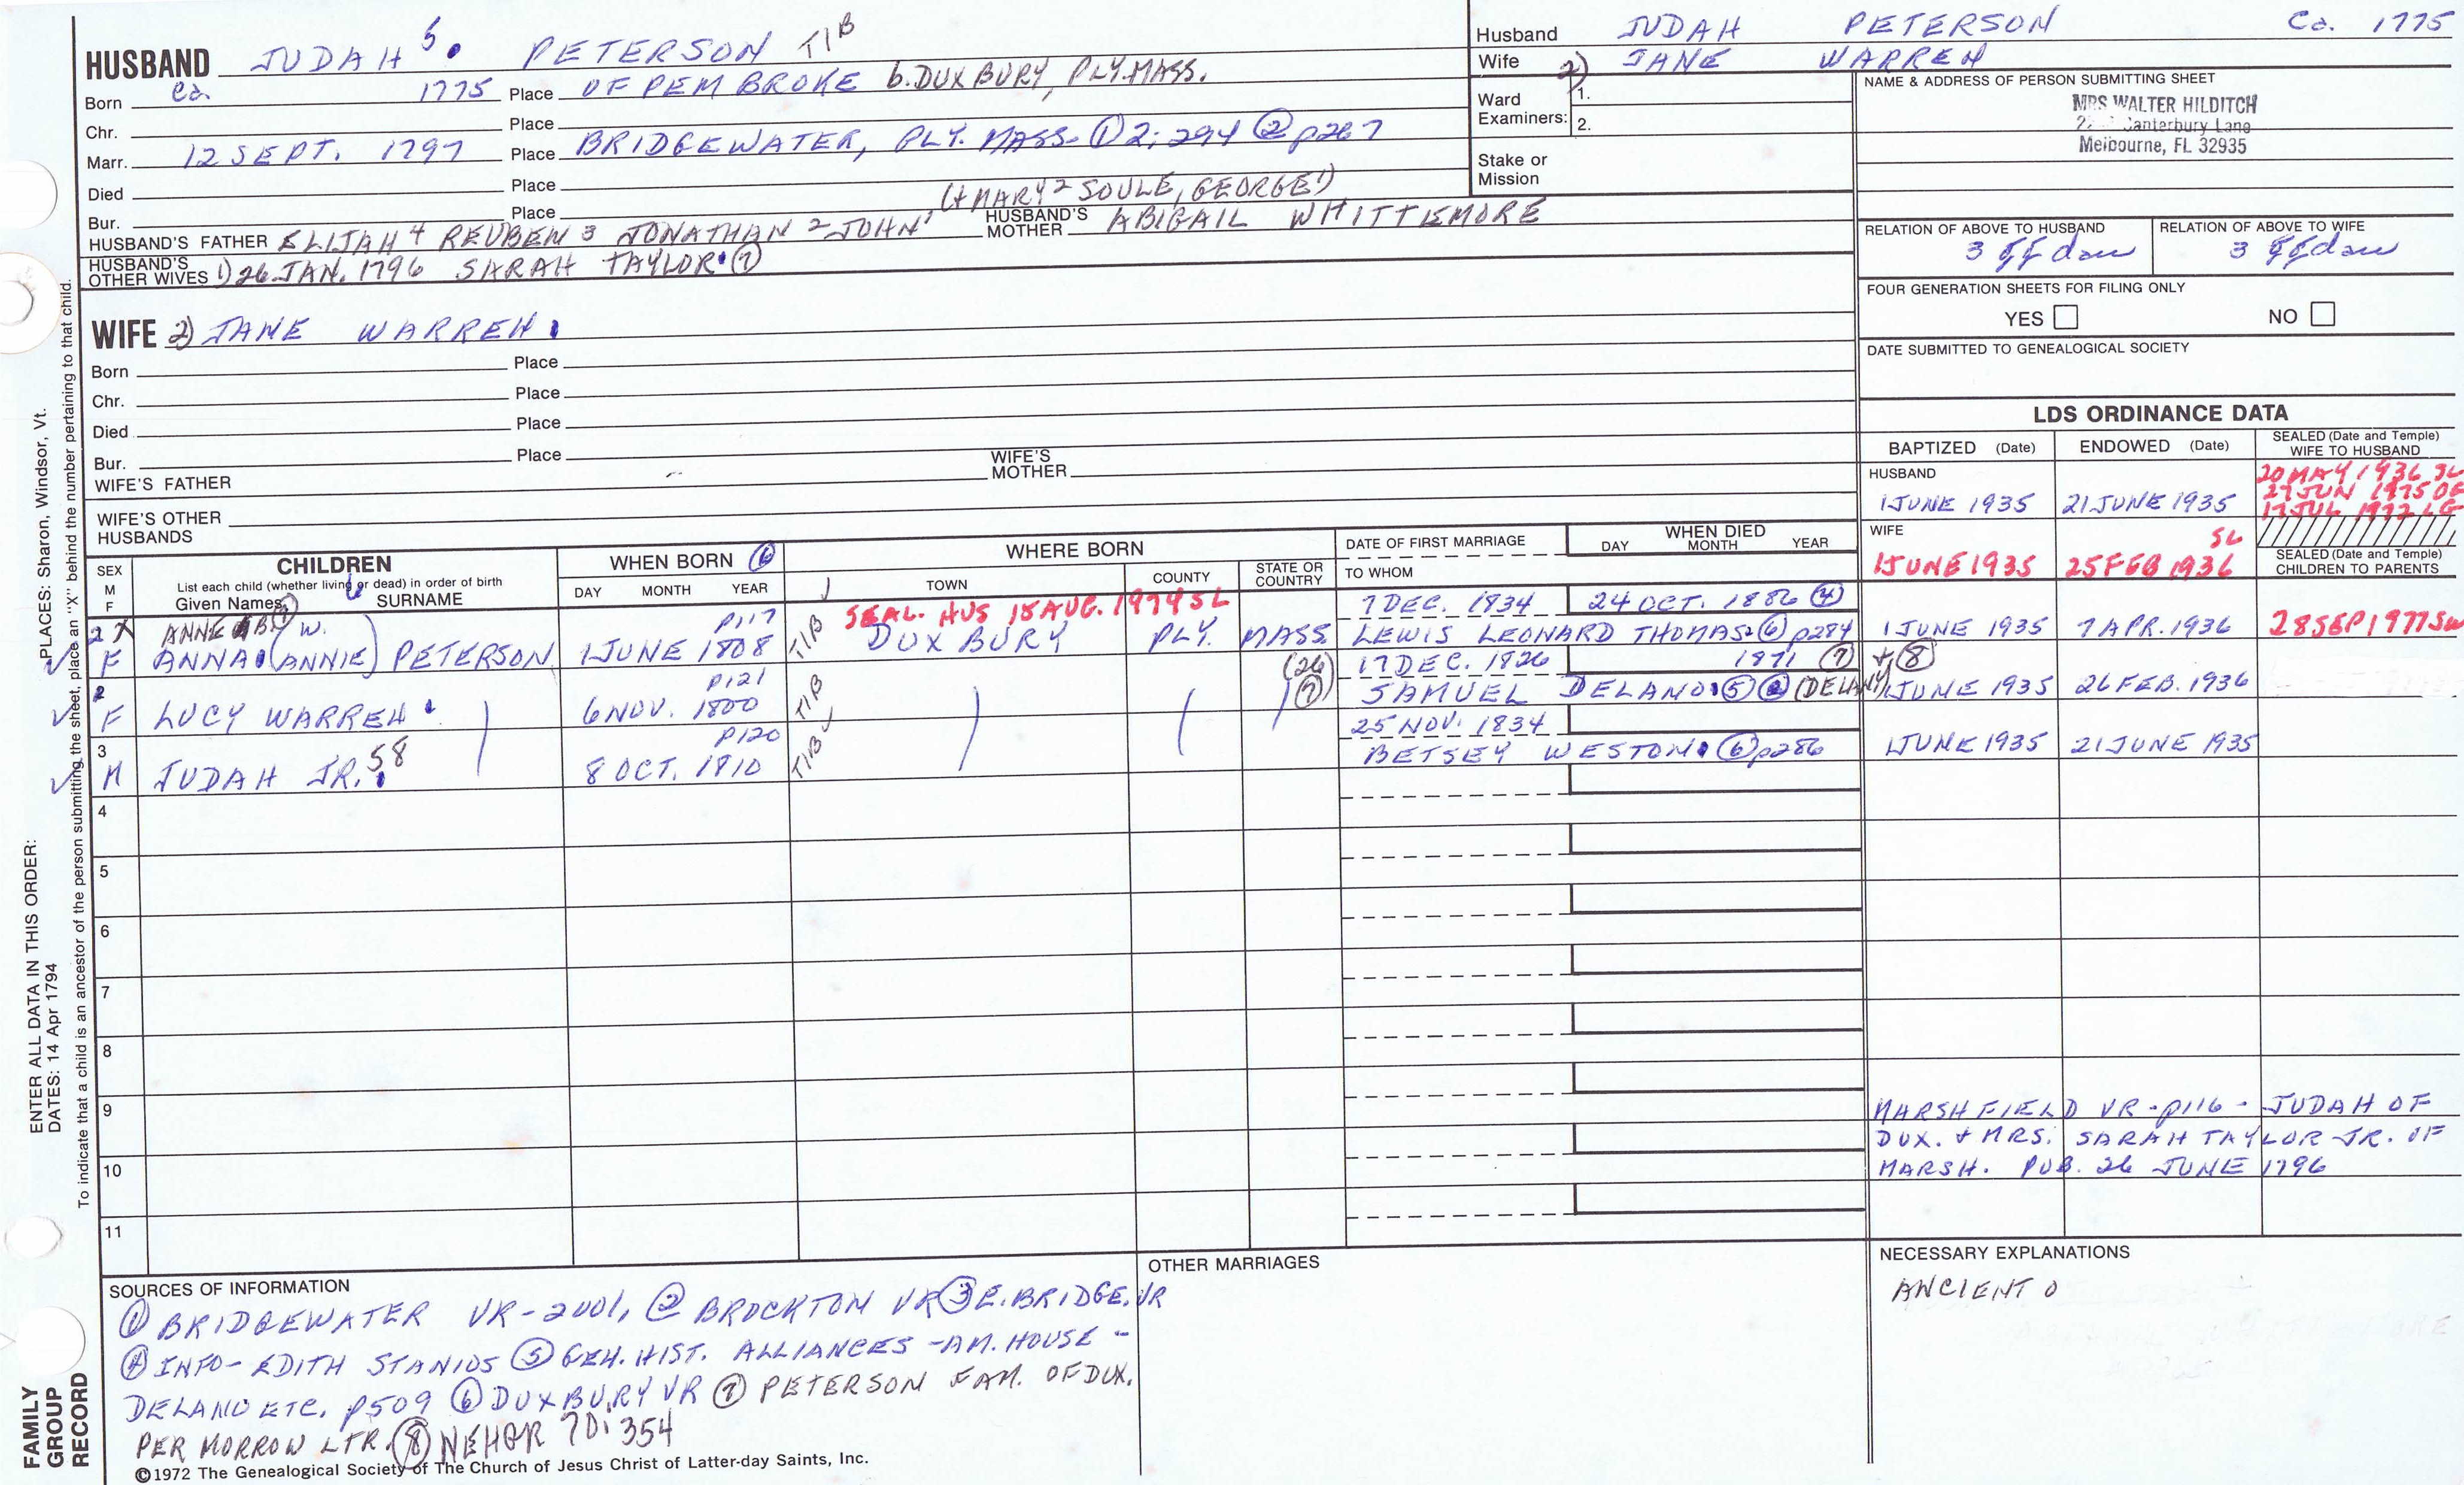 HUSBAND JUDAH 5. PETERSON TIB
Born Ca. 1775 Place OF PEMBROKE b. DUXBURY, PLY. MASS.
Chr. Place
Marr. 12 SEPT. 1797 Place BRIDGEWATER, PLY. MASS. ① 2; 294 ② p267
Died Place
(+ MARY 2 SOULE, GEORGE 1)
Bur. Place
HUSBAND'S FATHER ELIJAH 4 REUBEN 3 JONATHAN 2 JOHN 1 HUSBAND'S MOTHER ABIGAIL WHITTEMORE
HUSBAND'S OTHER WIVES 1) 26 JAN. 1796 SARAH TAYLOR. ⑦
WIFE 2) JANE WARREN
Born Place
Chr. Place
Died Place
Bur. Place
WIFE'S FATHER WIFE'S MOTHER
WIFE'S OTHER HUSBANDS
Husband JUDAH PETERSON Ca. 1775
Wife 2) JANE WARREN
Ward Examiners: 1.
2.
Stake or Mission
NAME & ADDRESS OF PERSON SUBMITTING SHEET
MRS WALTER HILDITCH
Canterbury Lane
Melbourne, FL 32935
RELATION OF ABOVE TO HUSBAND RELATION OF ABOVE TO WIFE
3 ggdau 3 ggdau
FOUR GENERATION SHEETS FOR FILING ONLY
YES NO
DATE SUBMITTED TO GENEALOGICAL SOCIETY
LDS ORDINANCE DATA
BAPTIZED (Date) ENDOWED (Date) SEALED (Date and Temple) WIFE TO HUSBAND
HUSBAND
1 JUNE 1935 21 JUNE 1935
20 MAY 1936 SL
27 JUN 1975 OG
17 JUL 1972 LG
WIFE SL
1 JUNE 1935 25 FEB 1936
SEALED (Date and Temple) CHILDREN TO PARENTS
SEX M F
CHILDREN
List each child (whether living or dead) in order of birth
Given Names SURNAME
WHEN BORN ⑥
DAY MONTH YEAR
WHERE BORN
TOWN COUNTY STATE OR COUNTRY
DATE OF FIRST MARRIAGE
TO WHOM
WHEN DIED
DAY MONTH YEAR
ANNE W. p117 SEAL. HUS 15 AUG. 1979 SL 7 DEC. 1834 24 OCT. 1886 ④
F ANNA (ANNIE) PETERSON 1 JUNE 1808 TIB DUXBURY PLY. MASS. LEWIS LEONARD THOMAS ⑥ p284 1 JUNE 1935 7 APR. 1936 28 SEP 1977 SL
2 p121 (26) 17 DEC. 1826 1871 ⑦ + ⑧
F LUCY WARREN 6 NOV. 1800 TIB ⑦ SAMUEL DELANO ⑤ (DELANY) 1 JUNE 1935 26 FEB. 1936
3 p120 25 NOV. 1834
M JUDAH JR. 58 8 OCT. 1810 TIB BETSEY WESTON ⑥ p286 1 JUNE 1935 21 JUNE 1935
4
5
6
7
8
9
10
11
MARSHFIELD VR - p116 - JUDAH OF
DUX. + MRS. SARAH TAYLOR JR. OF
MARSH. PUB. 26 JUNE 1796
SOURCES OF INFORMATION
① BRIDGEWATER VR - 2001, ② BROCKTON VR ③ E. BRIDGE. VR
④ INFO - EDITH STANIDS ⑤ GEN. HIST. ALLIANCES - AM. HOUSE -
DELANO ETC. p509 ⑥ DUXBURY VR ⑦ PETERSON FAM. OF DUX.
PER MORROW LTR. ⑧ NEHGR 70:354
©1972 The Genealogical Society of The Church of Jesus Christ of Latter-day Saints, Inc.
OTHER MARRIAGES
NECESSARY EXPLANATIONS
ANCIENT O
ENTER ALL DATA IN THIS ORDER:
DATES: 14 Apr 1794 PLACES: Sharon, Windsor, Vt.
To indicate that a child is an ancestor of the person submitting the sheet, place an "X" behind the number pertaining to that child.
FAMILY GROUP RECORD